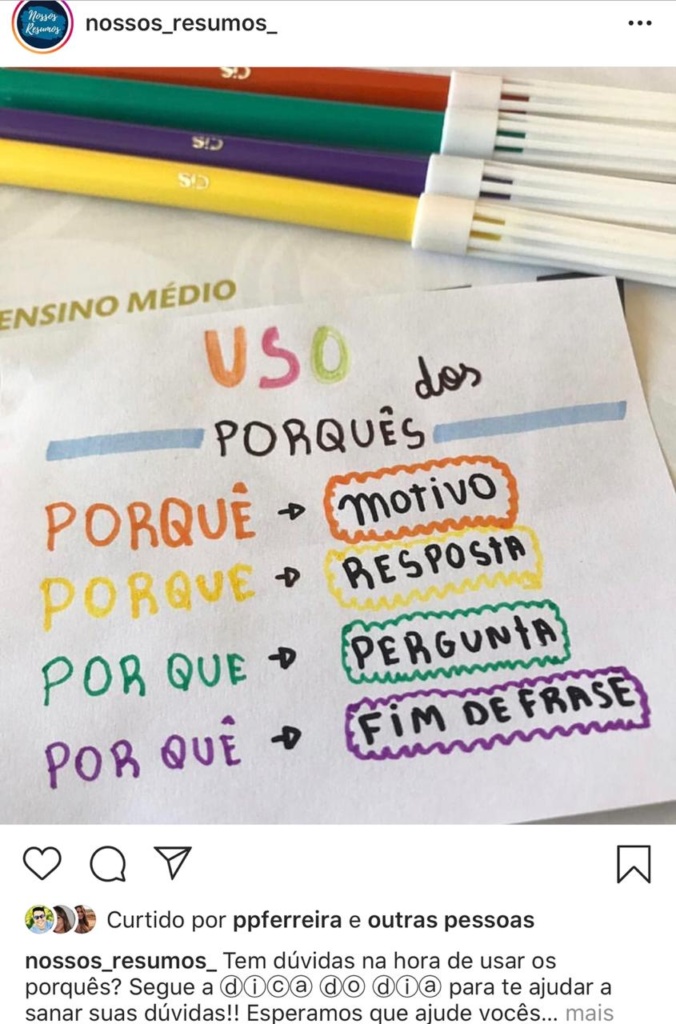 Nossos
Resumos
nossos_resumos_
CiS
CiS
CiS
ENSINO MÉDIO
USO dos
PORQUÊS
PORQUÊ → MOTIVO
PORQUE → RESPOSTA
POR QUE → PERGUNTA
POR QUÊ → FIM DE FRASE
Curtido por ppferreira e outras pessoas
nossos_resumos_ Tem dúvidas na hora de usar os
porquês? Segue a ⓓⓘⓒⓐ ⓓⓞ ⓓⓘⓐ para te ajudar a
sanar suas dúvidas!! Esperamos que ajude vocês... mais